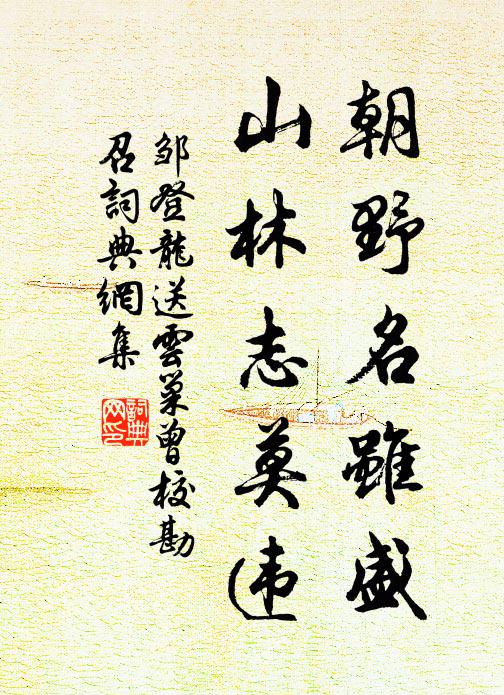 朝野名雖盛
山林志莫违
邹登龍送雲巢曾校勘
召詞典網集
詞典
网印